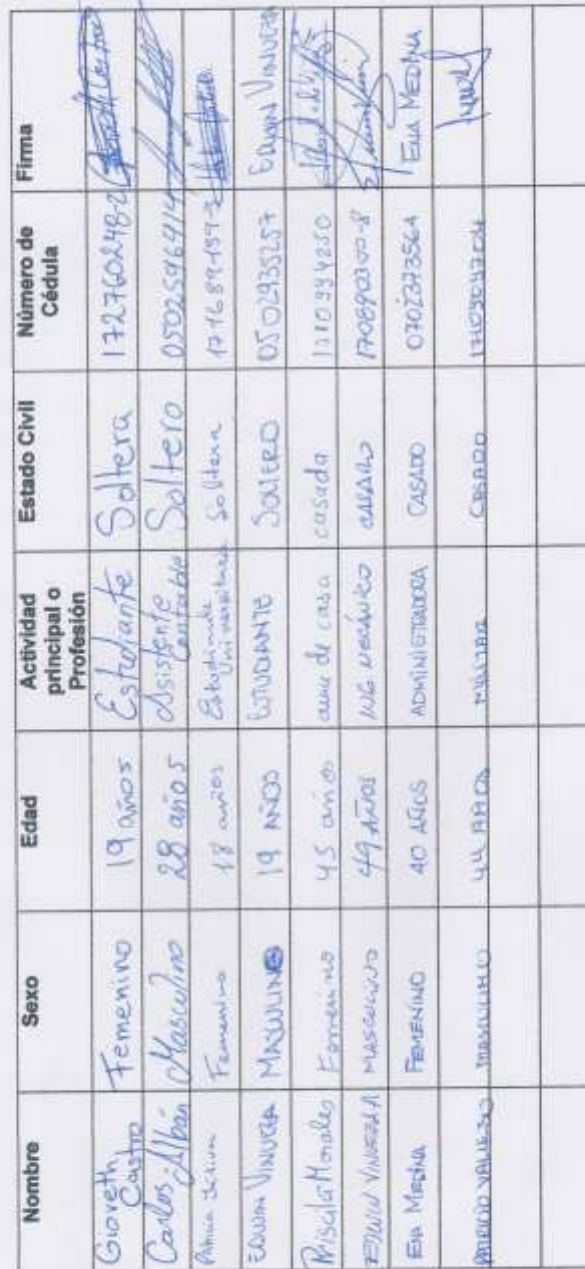 Nombre Sexo Edad Actividad principal o Profesión Estado Civil Número de Cédula Firma
Gioveth Castro Femenino 19 años Estudiante Soltera 172760248-2
Carlos Albán Masculino 28 años Asistente Contable Soltero 0502596414
Femenino 18 años Estudiante Universitaria Soltera
EDWIN VINUEZA MASCULINO 19 AÑOS ESTUDIANTE SOLTERO 0502935257 EDWIN VINUEZA
Priscila Morales Femenino 45 años ama de casa casada
EDWIN VINUEZA MASCULINO 49 AÑOS ING MECÁNICO CASADO 170890300-8
Ena MEDINA FEMENINO 40 AÑOS ADMINISTRADORA CASADO 0702373564 Ena MEDINA
MASCULINO 44 AÑOS MILITAR CASADO